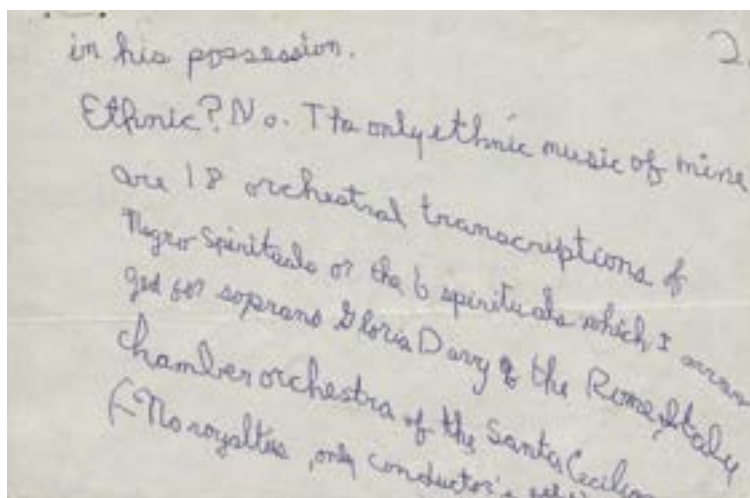 in his possession. 2.
Ethnic? No. The only ethnic music of mine
are 18 orchestral transcriptions of
Negro Spirituals or the 6 spirituals which I arran
ged for soprano Gloria Davy & the Rome, Italy
chamber orchestra of the Santa Cecilia
(No royalties, only conductor's